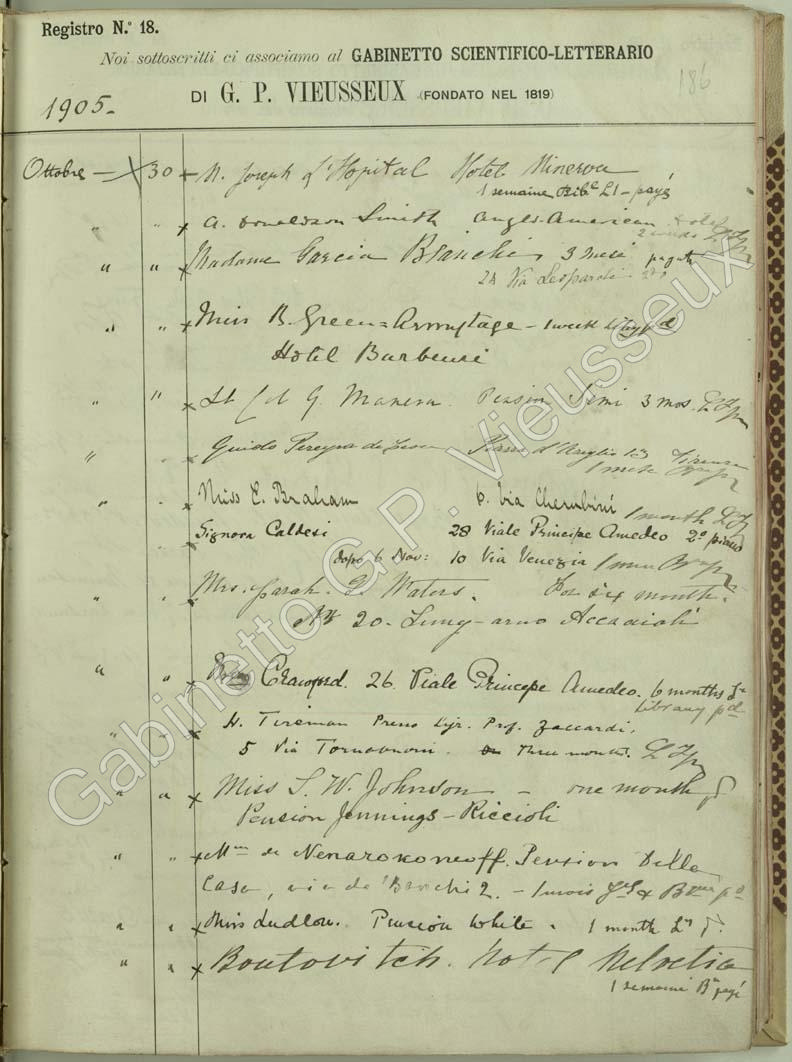 Registro N.º 18.
Noi sottoscritti ci associamo al GABINETTO SCIENTIFICO-LETTERARIO
DI G. P. VIEUSSEUX (FONDATO NEL 1819)
186
1905.
Ottobre 30 Joseph d'Hopital Hotel Minerva
1 semaine L1 - payé
" " A. Donaldson Smith Anglo-American
" " Madame Garcia Bianchi, 3 mesi pagato
28 Via Leopardi
" " Miss B. Green=Armytage - 1 week
Hotel Barbensi
" " Lt Col G. Manera Pension Simi 3 mos.
" Guido Pereyra de Piazza d'Azeglio 13 Firenze
1 mese
" " Miss E. Braham 6. Via Cherubini 1 month
Signora Caldesi 28 Viale Principe Amedeo 2º piano
dopo 6 Nov: 10 Via Venezia
" " Mrs. Sarah Waters. For six months.
20. Lung-arno Acciaioli
" " Crawford. 26. Viale Principe Amedeo. 6 months
Library pd
" " H. Tireman Presso Prof. Zaccardi,
5 Via Tornabuoni. Three months.
" " Miss S. W. Johnson - one month
Pension Jennings-Riccioli
" " Mme de Nenarokomoff. Pension Della
Casa, via de' Banchi 2. - 1 mois
" " Miss Ludlow. Pension White. 1 month
" " Boutovitch. Hotel Helvetia
1 semaine payé
Gabinetto G.P. Vieusseux